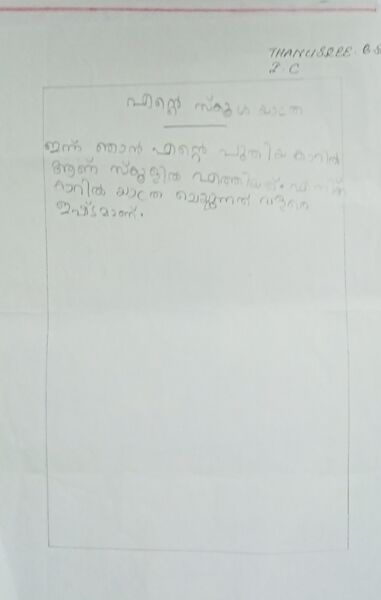 THANUSREE. B.S
2. C
എന്റെ സ്കൂൾ യാത്ര
ഇന്ന് ഞാൻ എന്റെ പുതിയ കാറിൽ
ആണ് സ്കൂളിൽ എത്തിയത്. എനിക്ക്
കാറിൽ യാത്ര ചെയ്യുന്നത് വളരെ
ഇഷ്ടമാണ്.